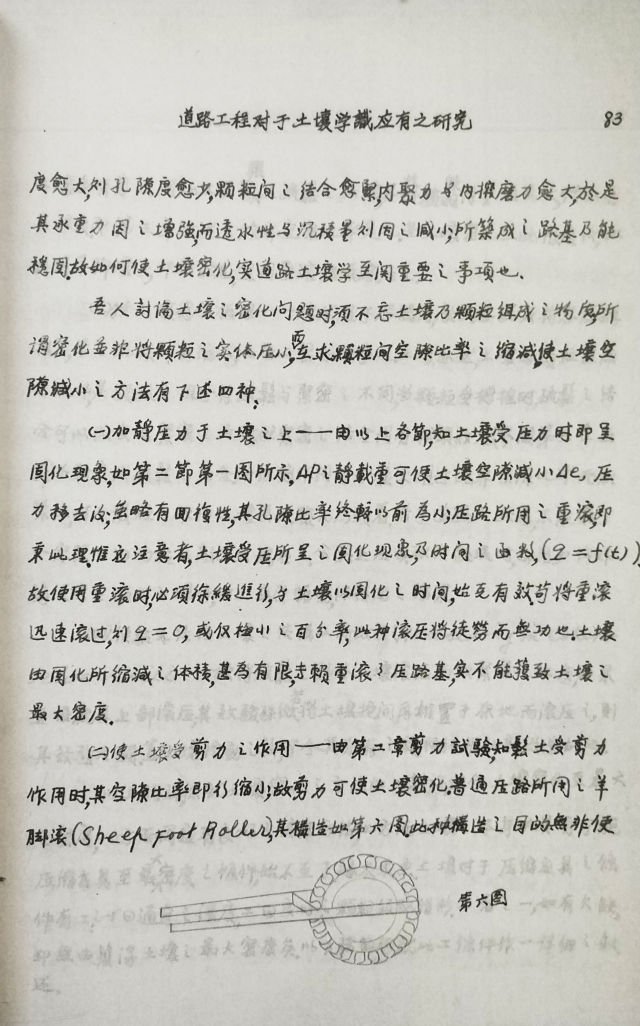 道路工程对于土壤学識应有之研究
83
度愈大,则孔隙度愈少,顆粒间之结合愈緊,内聚力与内擦磨力愈大,於是
其承重力因之增強,而透水性与沉積量则因之减小,所築成之路基乃能
穩固.故如何使土壤密化,实道路土壤学至関重要之事項也.
吾人討論土壤之密化问题时,须不忘土壤乃顆粒组成之物质,所
谓密化並非将顆粒之实体压小,而在求顆粒间空隙比率之缩减,使土壤空
隙减小之方法有下述四种:
(一)加静压力于土壤之上——由以上各節,知土壤受压力时即呈
固化现象,如第二節第一图所示,ΔP之静載重可使土壤空隙减小Δe,压
力移去後,虽略有回復性,其孔隙比率终較以前為小,压路所用之重滚,即
秉此理.惟应注意者,土壤受压所呈之固化现象,乃时间之函数,(q=f(t))
故使用重滚时,必須徐緩進行,与土壤以固化之时间,始克有效,苟将重滚
迅速滚过,则q=0,或仅极小之百分率,此种滚压将徒劳而無功也.土壤
由固化所缩减之体積,甚為有限,专賴重滚了压路基,实不能獲致土壤之
最大密度.
(二)使土壤受剪力之作用——由第二章剪力試驗,知鬆土受剪力
作用时,其空隙比率即行缩小,故剪力可使土壤密化.普通压路所用之羊
脚滚(Sheep Foot Roller),其構造如第六图.此种構造之目的,無非使
第六图